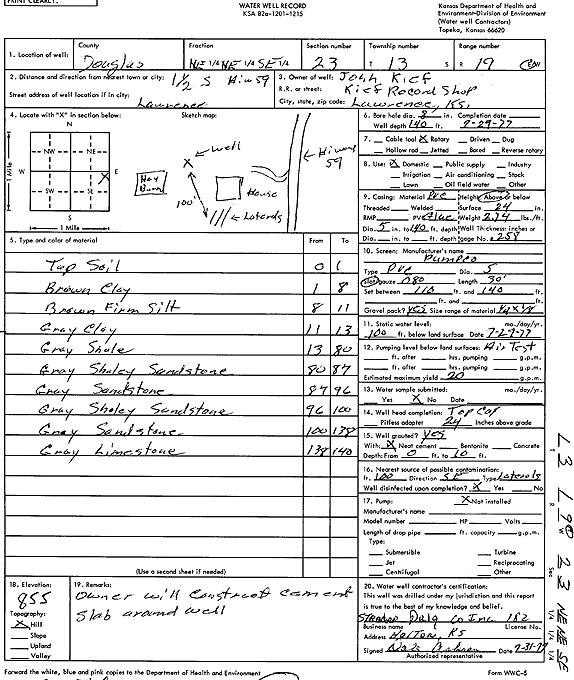 PRINT CLEARLY.
WATER WELL RECORD
KSA 82a-1201-1215
Kansas Department of Health and
Environment-Division of Environment
(Water well Contractors)
Topeka, Kansas 66620
1. Location of well:
County
Douglas
Fraction
NE 1/4 NE 1/4 SE 1/4
Section number
23
Township number
T 13 S
Range number
R 19 E/W
2. Distance and direction from nearest town or city: 1 1/2 S Hiway 59
Street address of well location if in city: Lawrence
3. Owner of well: John Kief
R.R. or street: Kief Record Shop
City, state, zip code: Lawrence, Ks.
4. Locate with "X" in section below:
Sketch map:
N
NW NE
W E
SW SE
S
1 Mile
1 Mile
X well
Hay Barn
House
100'
Laterals
Hiway 59
5. Type and color of material From To
Top Soil 0 1
Brown Clay 1 8
Brown Firm Silt 8 11
Gray Clay 11 13
Gray Shale 13 80
Gray Shaley Sandstone 80 87
Gray Sandstone 87 96
Gray Shaley Sandstone 96 100
Gray Sandstone 100 138
Gray Limestone 138 140
(Use a second sheet if needed)
6. Bore hole dia. 8 in. Completion date
Well depth 140 ft. 7-29-77
7. Cable tool X Rotary Driven Dug
Hollow rod Jetted Bored Reverse rotary
8. Use: X Domestic Public supply Industry
Irrigation Air conditioning Stock
Lawn Oil field water Other
9. Casing: Material PVC Height: Above or below
Threaded Welded Surface 24 in.
RMP PVC Glue Weight 2.74 lbs./ft.
Dia. 5 in. to 140 ft. depth Wall Thickness: inches or
Dia. in. to ft. depth gage No. .258
10. Screen: Manufacturer's name
Pumpco
Type PVC Dia. 5
Slot/gauze .080 Length 30'
Set between 110 ft. and 140 ft.
ft. and ft.
Gravel pack? yes Size range of material 1/4 x 1/8
11. Static water level: mo./day/yr.
100 ft. below land surface Date 7-29-77
12. Pumping level below land surfaces: Air Test
ft. after hrs. pumping g.p.m.
ft. after hrs. pumping g.p.m.
Estimated maximum yield 20 g.p.m.
13. Water sample submitted: mo./day/yr.
Yes X No Date
14. Well head completion: Top Cap
Pitless adapter 24 Inches above grade
15. Well grouted? yes
With: X Neat cement Bentonite Concrete
Depth: From 0 ft. to 10 ft.
16. Nearest source of possible contamination:
ft. 100 Direction SE Type Laterals
Well disinfected upon completion? X Yes No
17. Pump: X Not installed
Manufacturer's name
Model number HP Volts
Length of drop pipe ft. capacity g.p.m.
Type:
Submersible Turbine
Jet Reciprocating
Centrifugal Other
18. Elevation:
855
Topography:
X Hill
Slope
Upland
Valley
19. Remarks:
Owner will construct cement
slab around well
20. Water well contractor's certification:
This well was drilled under my jurisdiction and this report
is true to the best of my knowledge and belief.
Strader Drlg Co Inc. 182
Business name License No.
Address Holton, Ks
Signed Date 7-31-77
Authorized representative
Forward the white, blue and pink copies to the Department of Health and Environment
Form WWC-5